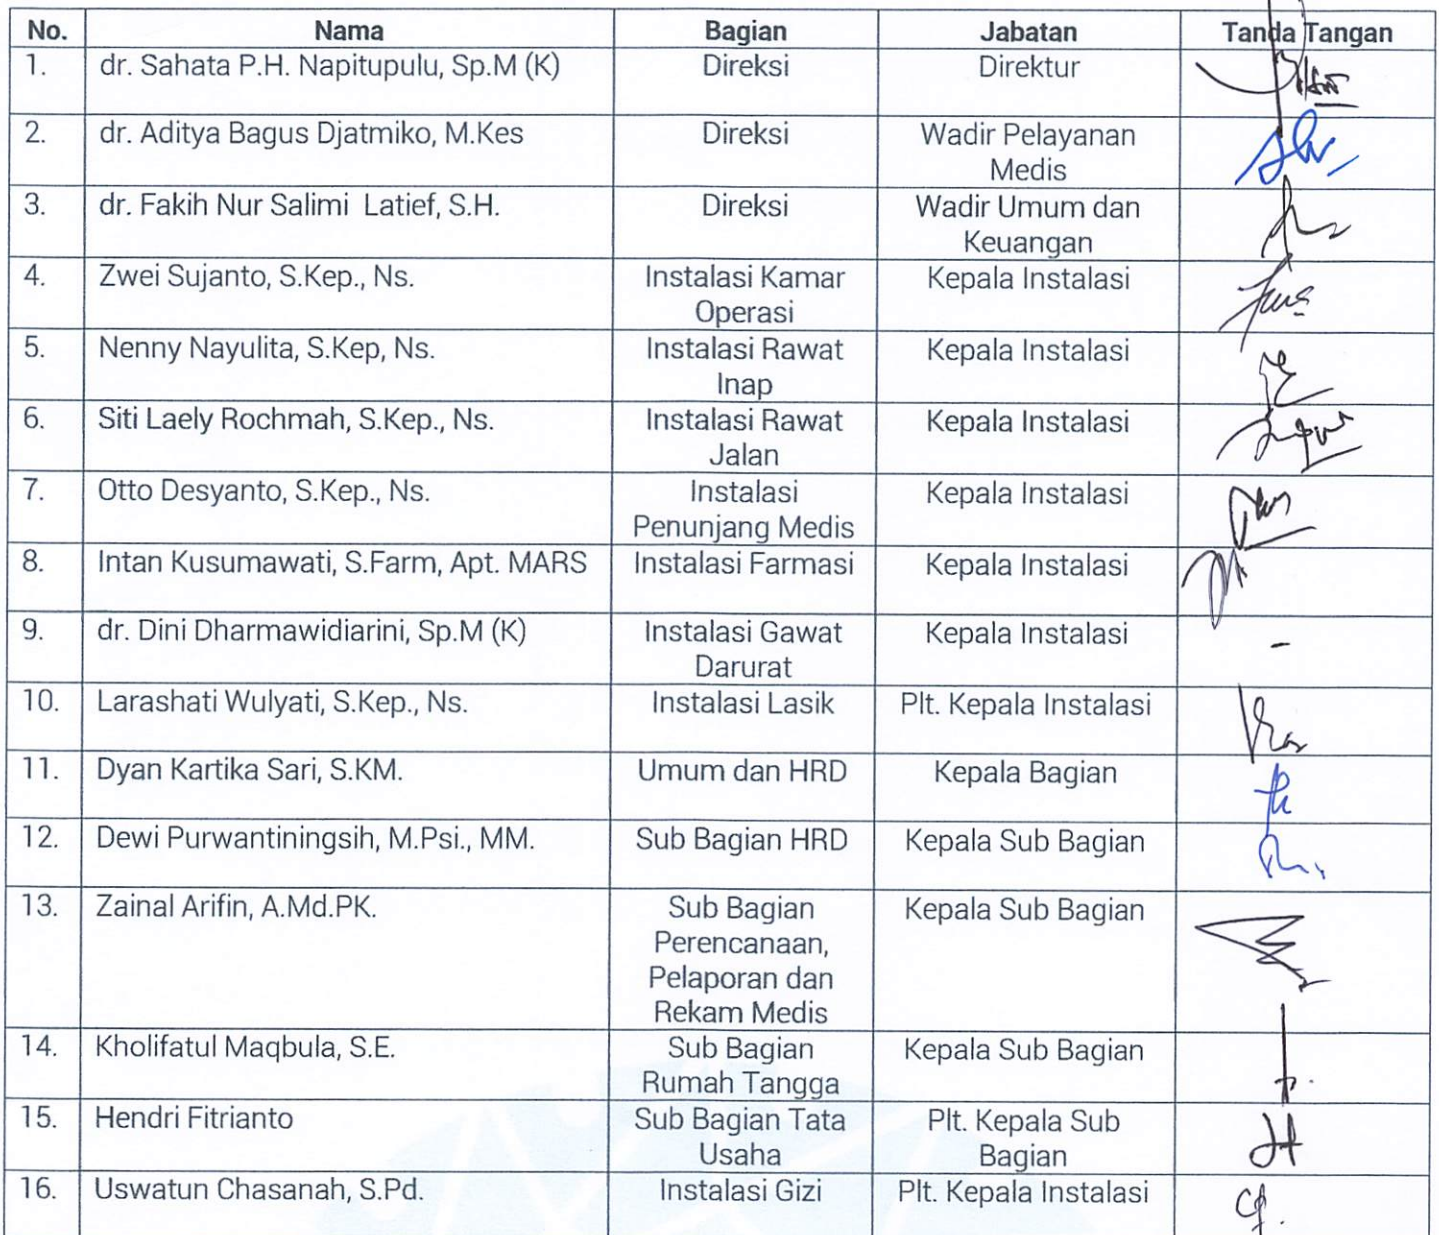 No. Nama Bagian Jabatan Tanda Tangan
1. dr. Sahata P.H. Napitupulu, Sp.M (K) Direksi Direktur
2. dr. Aditya Bagus Djatmiko, M.Kes Direksi Wadir Pelayanan
Medis
3. dr. Fakih Nur Salimi Latief, S.H. Direksi Wadir Umum dan
Keuangan
4. Zwei Sujanto, S.Kep., Ns. Instalasi Kamar Kepala Instalasi
Operasi
5. Nenny Nayulita, S.Kep, Ns. Instalasi Rawat Kepala Instalasi
Inap
6. Siti Laely Rochmah, S.Kep., Ns. Instalasi Rawat Kepala Instalasi
Jalan
7. Otto Desyanto, S.Kep., Ns. Instalasi Kepala Instalasi
Penunjang Medis
8. Intan Kusumawati, S.Farm, Apt. MARS Instalasi Farmasi Kepala Instalasi
9. dr. Dini Dharmawidiarini, Sp.M (K) Instalasi Gawat Kepala Instalasi -
Darurat
10. Larashati Wulyati, S.Kep., Ns. Instalasi Lasik Plt. Kepala Instalasi
11. Dyan Kartika Sari, S.KM. Umum dan HRD Kepala Bagian
12. Dewi Purwantiningsih, M.Psi., MM. Sub Bagian HRD Kepala Sub Bagian
13. Zainal Arifin, A.Md.PK. Sub Bagian Kepala Sub Bagian
Perencanaan,
Pelaporan dan
Rekam Medis
14. Kholifatul Maqbula, S.E. Sub Bagian Kepala Sub Bagian
Rumah Tangga
15. Hendri Fitrianto Sub Bagian Tata Plt. Kepala Sub
Usaha Bagian
16. Uswatun Chasanah, S.Pd. Instalasi Gizi Plt. Kepala Instalasi